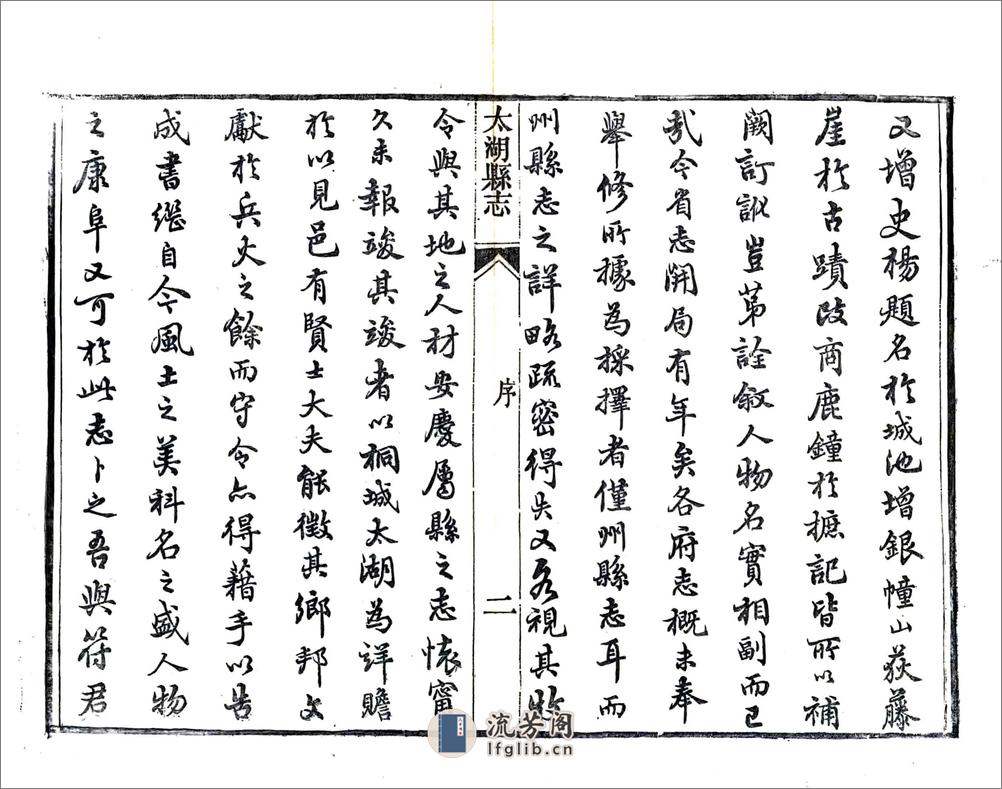 又增史楊題名於城池增銀幢山荻藤
崖於古蹟改商鹿鐘於摭記皆所以補
闕訂訛豈第詮敘人物名實相副而已
哉今省志開局有年矣各府志概未奉
舉修所據為採擇者僅州縣志耳而
州縣志之詳略疏密得失又各視其
太湖縣志
序
二
令與其地之人材安慶屬縣之志懷甯
久未報竣其竣者以桐城太湖為詳贍
於以見邑有賢士大夫能徵其鄉邦文
獻於兵火之餘而守令亦得藉手以告
成書繼自今風土之美科名之盛人物
之康阜又可於此志卜之吾與符君
流芳阁
lfglib.cn